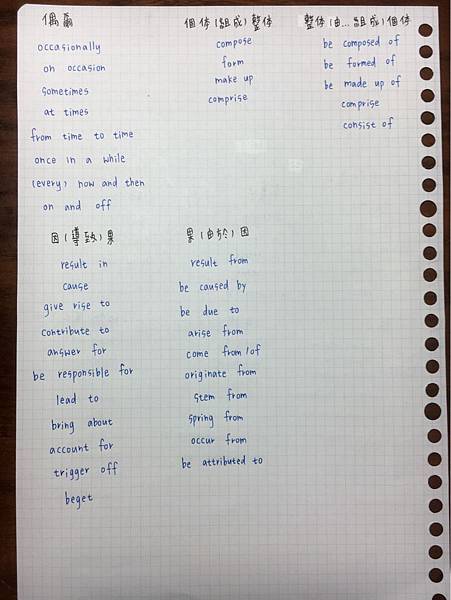 偶爾
occasionally
on occasion
sometimes
at times
from time to time
once in a while
(every) now and then
on and off
個体(組成)整体
compose
form
make up
comprise
整体(由...組成)個体
be composed of
be formed of
be made up of
comprise
consist of
因(導致)果
result in
cause
give rise to
contribute to
answer for
be responsible for
lead to
bring about
account for
trigger off
beget
果(由於)因
result from
be caused by
be due to
arise from
come from/of
originate from
stem from
spring from
occur from
be attributed to